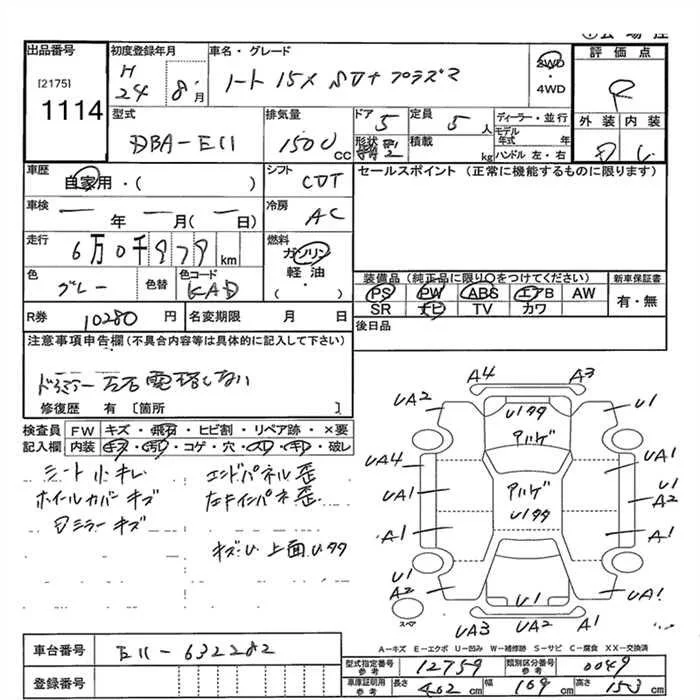 出品番号 初度登録年月 車名・グレード 評価点
[2175] H 24年 8月 ノート 15X SV+プラズマ 2WD・4WD R
1114
型式 排気量 ドア 定員 ディーラー・並行 外装 内装
DBA-E11 1500 CC 5 5人 モデル年式 年
形状 積載 kg ハンドル 左・右
車歴 シフト セールスポイント (正常に機能するものに限ります)
自家用・( ) CVT
車検 冷房
— 年 —月(—日) AC
走行 燃料
6万0千979km ガソリン
軽油
・( )
色 色替 色コード 装備品(純正品に限り○をつけてください) 新車保証書
グレー KAD PS PW ABS エアB AW 有・無
SR ナビ TV カワ
R券 10280円 名変期限 月 日 後日品
注意事項申告欄(不具合内容等は具体的に記入して下さい)
ドアミラー左右電格しない
修復歴 有 [箇所 ]
検査員 FW キズ・飛石・ヒビ割・リペア跡・×要
記入欄 内装 キズ・汚れ・コゲ・穴・スレ・キレ・破レ
シート小キレ エンドパネル歪
ホイールカバーキズ 左キインパネ歪
ミラーキズ
キズU 上面Uタタ
A4 A3
UA2 U1
Uタタ
アルゲ
UA4 UA1
UA1 アルゲ U1
A2
Uタタ
A1 A1
U1 U1
A2 UA1
U1
スペア UA3 UA2 A1
A-キズ E-エクボ U-凹み W-補修跡 S-サビ C-腐食 XX-交換済
車台番号 E11-632282
型式指定番号 参考 12759 類別区分番号 参考 0049
登録番号 車庫証明用 参考 長さ 402cm 幅 169cm 高さ 153cm